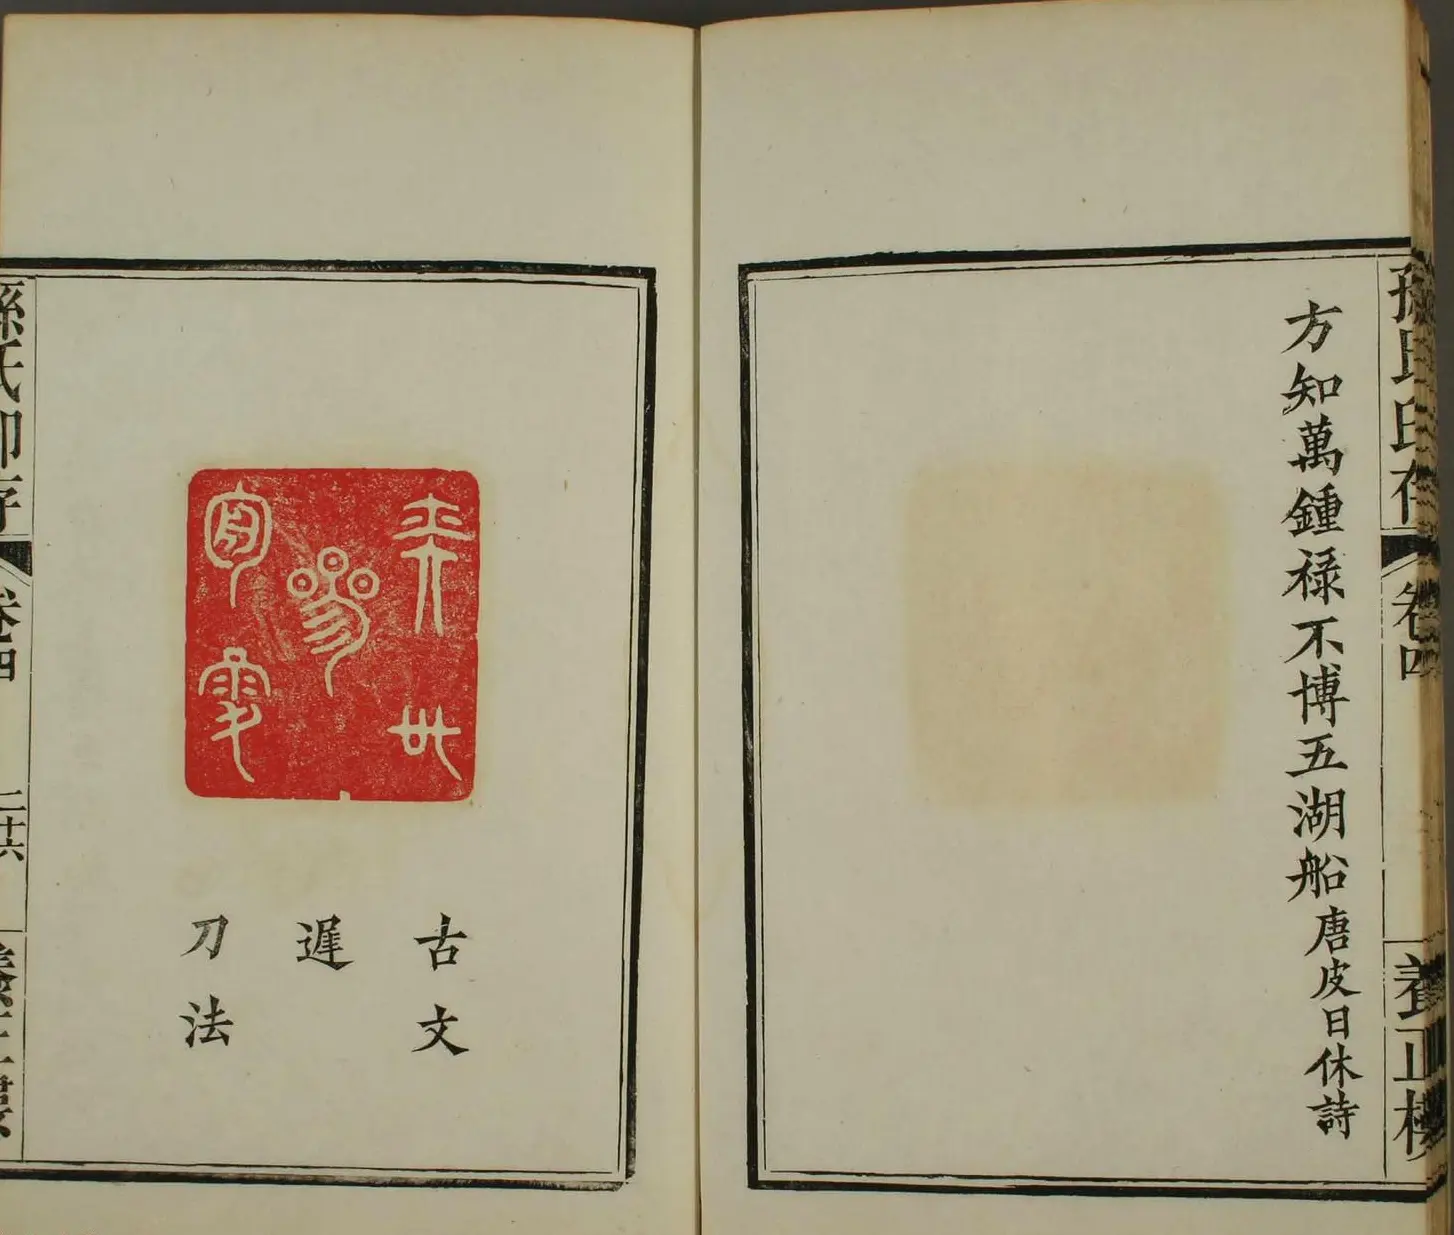 孫氏印存
卷四
養正樓
方知萬鍾祿不博五湖船唐皮日休詩
古文
遲
刀法
孫氏印存
卷四
二十六
養正樓